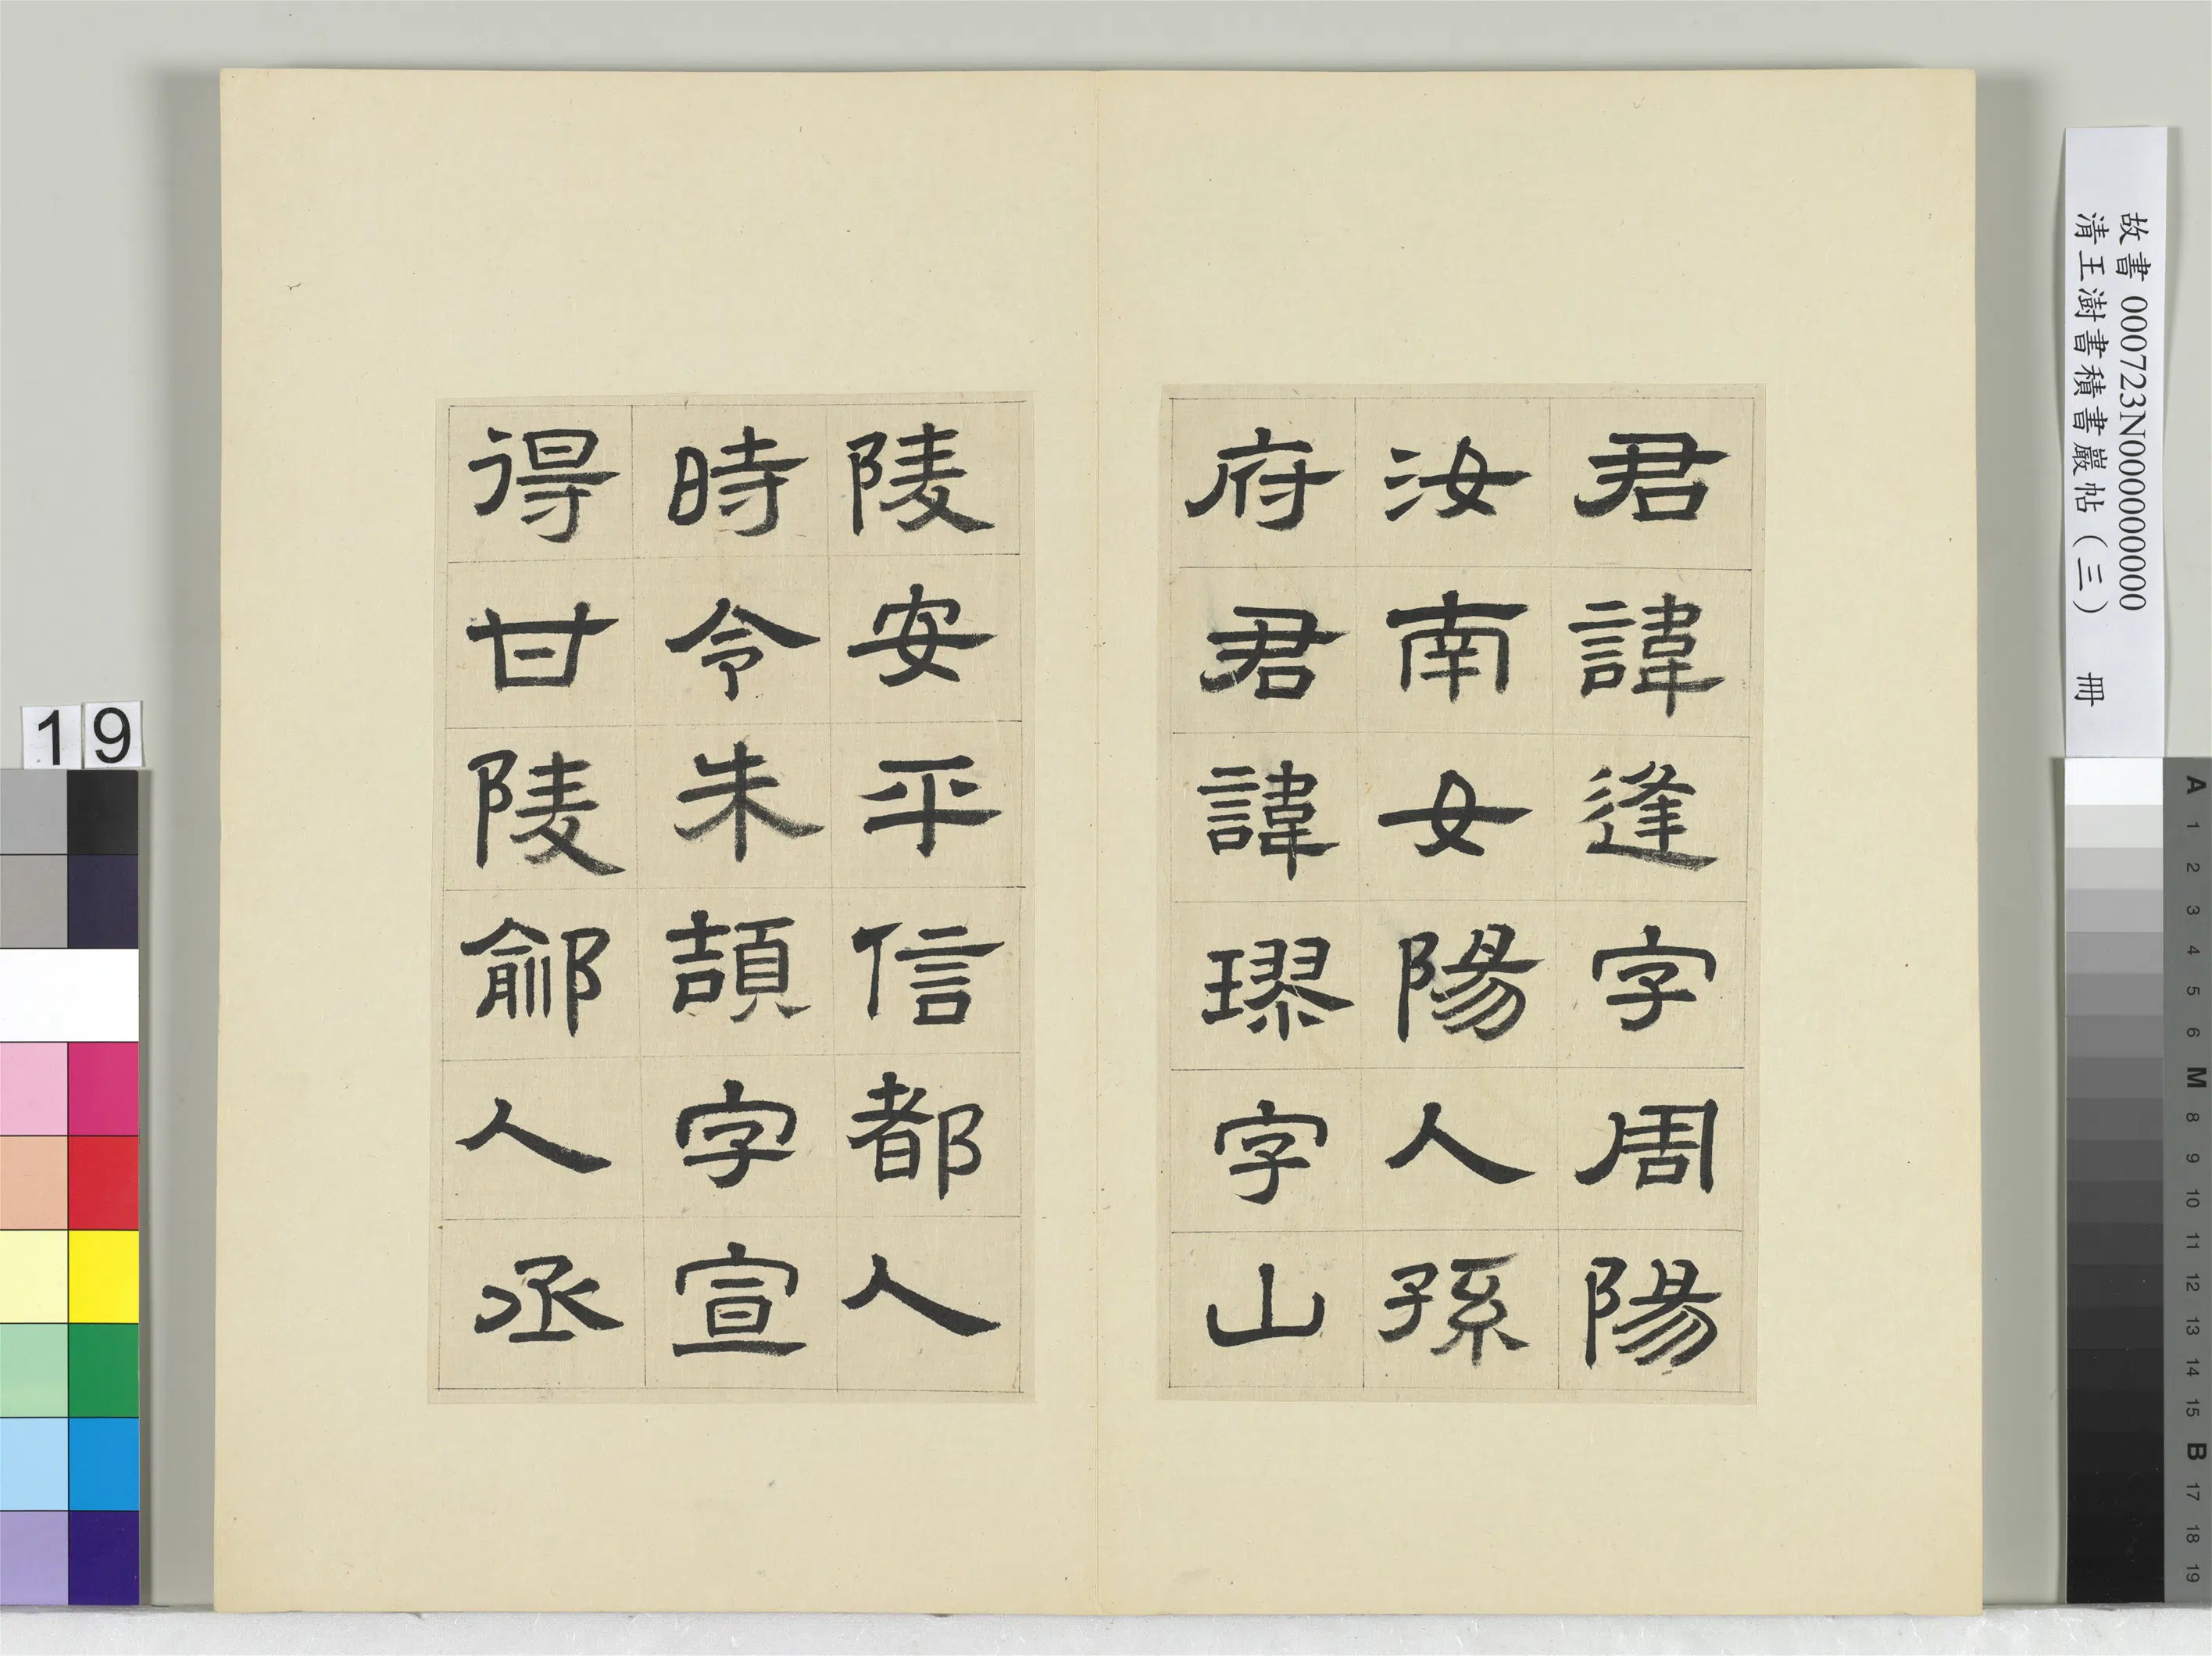 君諱逢字周陽
汝南女陽人孫
府君諱璆字山
陵安平信都人
時令朱頡字宣
得甘陵鄃人丞
故書 000723N000000000
清王澍書積書巖帖（三） 冊
19
A 1 2 3 4 5 6 M 8 9 10 11 12 13 14 15 B 17 18 19